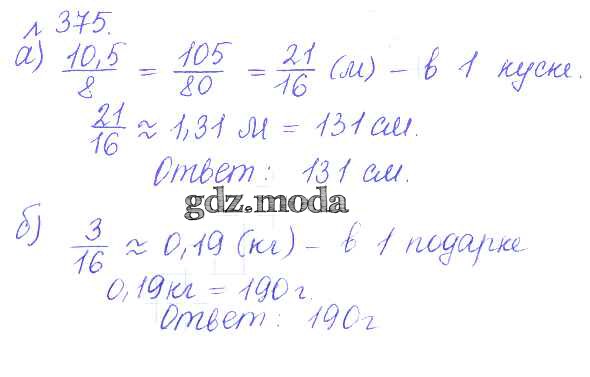 № 375.
а) 10,5/8 = 105/80 = 21/16 (м) – в 1 куске.
21/16 ≈ 1,31 м = 131 см.
Ответ: 131 см.
gdz.moda
б) 3/16 ≈ 0,19 (кг) – в 1 подарке
0,19 кг = 190 г.
Ответ: 190 г